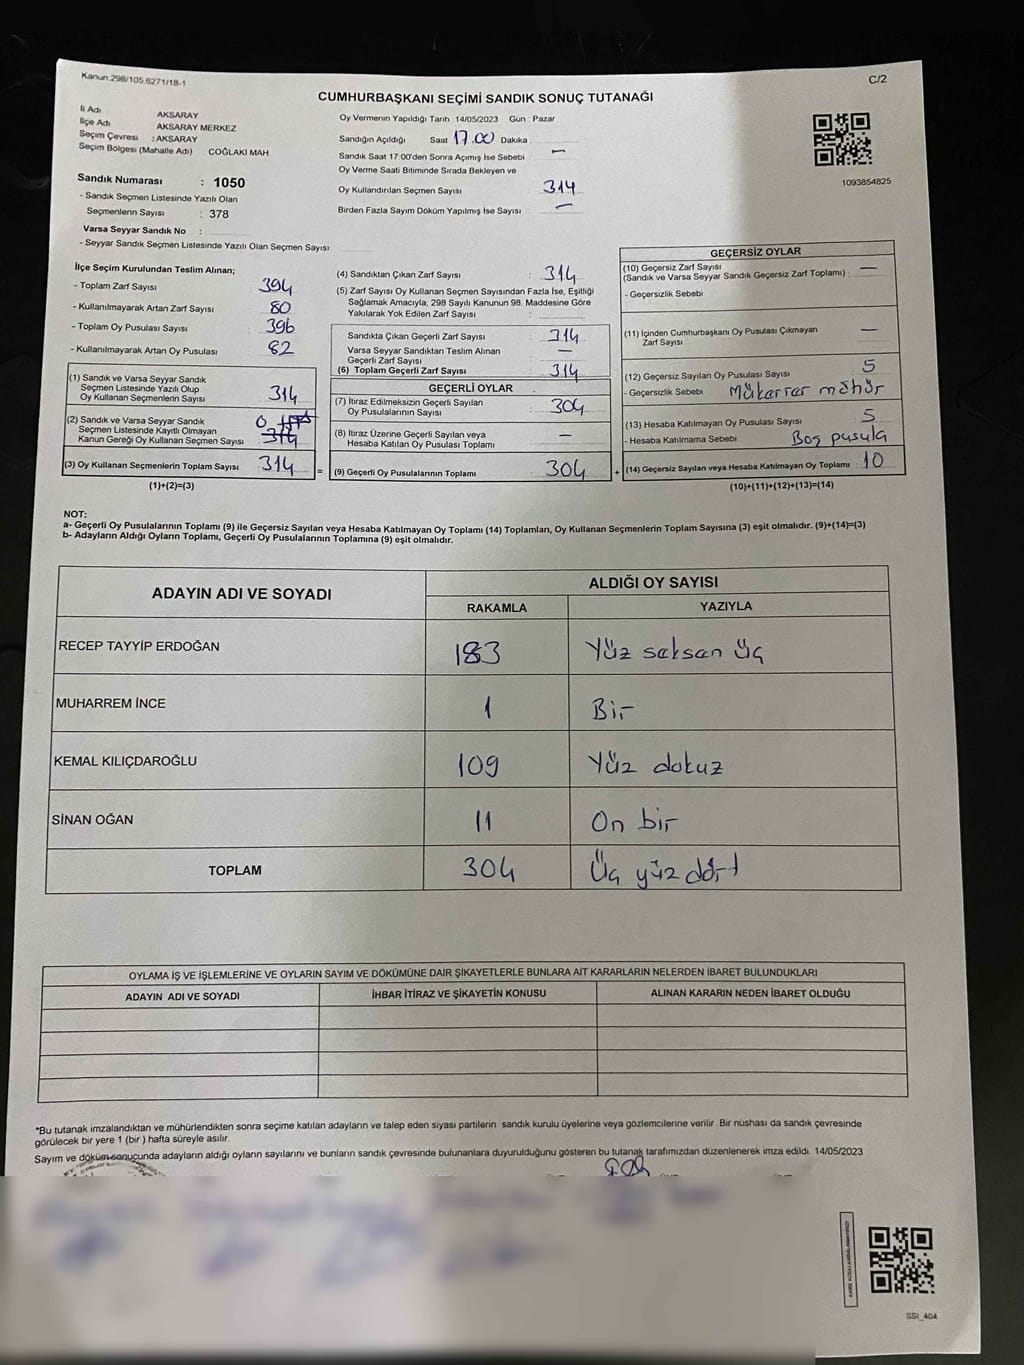 Kanun:298/105.6271/18-1
C/2
CUMHURBAŞKANI SEÇİMİ SANDIK SONUÇ TUTANAĞI
İl Adı AKSARAY
İlçe Adı AKSARAY MERKEZ
Seçim Çevresi : AKSARAY
Seçim Bölgesi (Mahalle Adı) COĞLAKI MAH
Oy Vermenin Yapıldığı Tarih 14/05/2023 Gün : Pazar
Sandığın Açıldığı Saat 17.00 Dakika
Sandık Saat 17:00'den Sonra Açımış İse Sebebi —
Oy Verme Saati Bitiminde Sırada Bekleyen ve
Oy Kullandırılan Seçmen Sayısı 314
Birden Fazla Sayım Döküm Yapılmış İse Sayısı —
1093854825
Sandık Numarası : 1050
- Sandık Seçmen Listesinde Yazılı Olan
Seçmenlerin Sayısı : 378
Varsa Seyyar Sandık No :
- Seyyar Sandık Seçmen Listesinde Yazılı Olan Seçmen Sayısı:
İlçe Seçim Kurulundan Teslim Alınan;
- Toplam Zarf Sayısı 394
- Kullanılmayarak Artan Zarf Sayısı 80
- Toplam Oy Pusulası Sayısı 396
- Kullanılmayarak Artan Oy Pusulası 82
(1) Sandık ve Varsa Seyyar Sandık
Seçmen Listesinde Yazılı Olup
Oy Kullanan Seçmenlerin Sayısı 314
(2) Sandık ve Varsa Seyyar Sandık
Seçmen Listesinde Kayıtlı Olmayan
Kanun Gereği Oy Kullanan Seçmen Sayısı 0 314
(3) Oy Kullanan Seçmenlerin Toplam Sayısı 314 =
(1)+(2)=(3)
(4) Sandıktan Çıkan Zarf Sayısı : 314
(5) Zarf Sayısı Oy Kullanan Seçmen Sayısından Fazla İse, Eşitliği
Sağlamak Amacıyla; 298 Sayılı Kanunun 98. Maddesine Göre
Yakılarak Yok Edilen Zarf Sayısı :
Sandıkta Çıkan Geçerli Zarf Sayısı : 314
Varsa Seyyar Sandıktan Teslim Alınan
Geçerli Zarf Sayısı —
(6) Toplam Geçerli Zarf Sayısı : 314
GEÇERLİ OYLAR
(7) İtiraz Edilmeksizin Geçerli Sayılan
Oy Pusulalarının Sayısı : 304
(8) İtiraz Üzerine Geçerli Sayılan veya
Hesaba Katılan Oy Pusulası Toplamı —
(9) Geçerli Oy Pusulalarının Toplamı : 304 +
GEÇERSİZ OYLAR
(10) Geçersiz Zarf Sayısı
(Sandık ve Varsa Seyyar Sandık Geçersiz Zarf Toplamı) : —
- Geçersizlik Sebebi
(11) İçinden Cumhurbaşkanı Oy Pusulası Çıkmayan
Zarf Sayısı —
(12) Geçersiz Sayılan Oy Pusulası Sayısı 5
- Geçersizlik Sebebi Mükerrer mühür
(13) Hesaba Katılmayan Oy Pusulası Sayısı : 5
- Hesaba Katılmama Sebebi Boş pusula
(14) Geçersiz Sayılan veya Hesaba Katılmayan Oy Toplamı : 10
(10)+(11)+(12)+(13)=(14)
NOT:
a- Geçerli Oy Pusulalarının Toplamı (9) ile Geçersiz Sayılan veya Hesaba Katılmayan Oy Toplamı (14) Toplamları, Oy Kullanan Seçmenlerin Toplam Sayısına (3) eşit olmalıdır. (9)+(14)=(3)
b- Adayların Aldığı Oyların Toplamı, Geçerli Oy Pusulalarının Toplamına (9) eşit olmalıdır.
ADAYIN ADI VE SOYADI ALDIĞI OY SAYISI
RAKAMLA YAZIYLA
RECEP TAYYİP ERDOĞAN 183 Yüz seksen üç
MUHARREM İNCE 1 Bir
KEMAL KILIÇDAROĞLU 109 Yüz dokuz
SİNAN OĞAN 11 On bir
TOPLAM 304 Üç yüz dört
OYLAMA İŞ VE İŞLEMLERİNE VE OYLARIN SAYIM VE DÖKÜMÜNE DAİR ŞİKAYETLERLE BUNLARA AİT KARARLARIN NELERDEN İBARET BULUNDUKLARI
ADAYIN ADI VE SOYADI İHBAR İTİRAZ VE ŞİKAYETİN KONUSU ALINAN KARARIN NEDEN İBARET OLDUĞU
*Bu tutanak imzalandıktan ve mühürlendikten sonra seçime katılan adayların ve talep eden siyasi partilerin sandık kurulu üyelerine veya gözlemcilerine verilir. Bir nüshası da sandık çevresinde
görülecek bir yere 1 (bir ) hafta süreyle asılır.
Sayım ve döküm sonucunda adayların aldığı oyların sayılarını ve bunların sandık çevresinde bulunanlara duyurulduğunu gösteren bu tutanak tarafımızdan düzenlenerek imza edildi. 14/05/2023
SSI_404